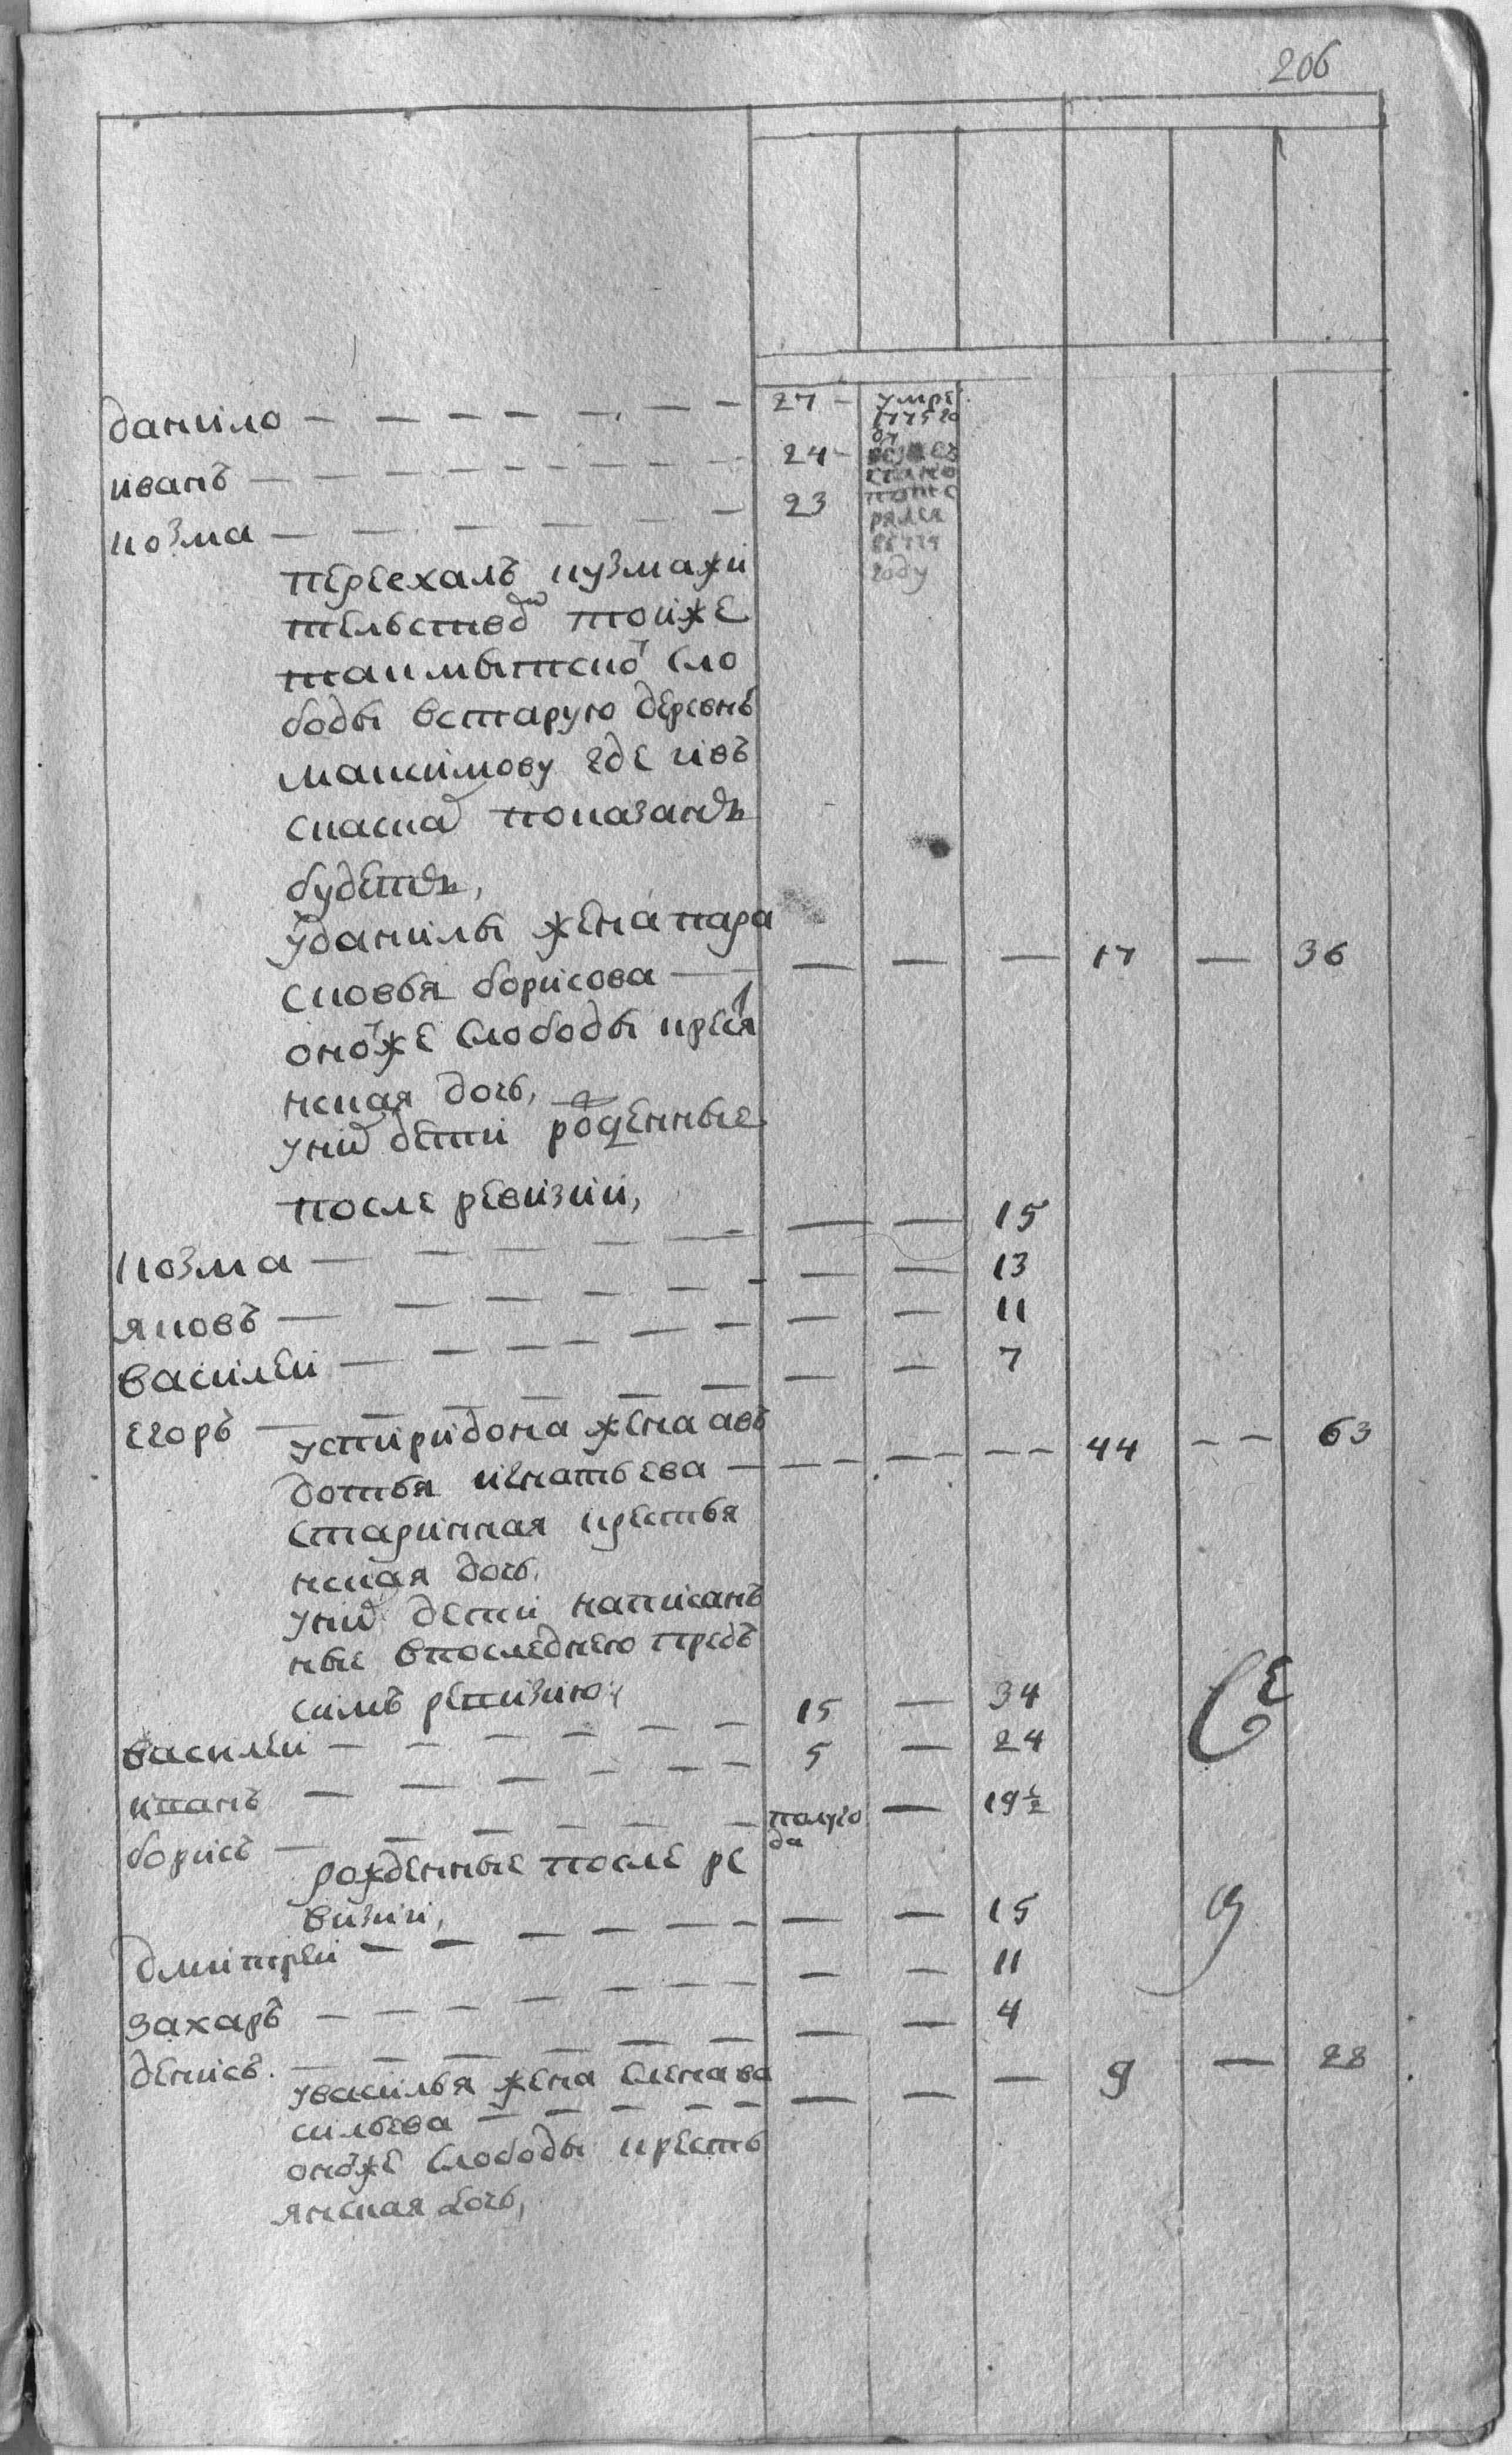 206
данило — — — — — — — 27 — умре
1775 го
ду
иванъ — — — — — — — 24 —
козма — — — — — — 23
году
переехалъ кузма жи
телством тойже
такмыцкой сло
боды встарую деревню
максимову где ивъ
сказка показанъ
будетъ,
уданилы жена пара
сковья борисова — — — — — 17 — 36
онойже слободы крестья
нская дочь,
уних дети рожденные
после ревизии,
козма — — — — — — — — 15
яковъ — — — — — — — — 13
василей — — — — — — — — 11
егоръ — — — — — — — — 7
успиридона жена авъ
дотья игнатьева — — — — — — — 44 — — 63
старинная крестья
нская дочь,
уних дети написанъ
ные впоследнею предъ
симъ ревизию
василей — — — — — — 15 — 34
иванъ — — — — — — 5 — 24
борисъ — — — — — — полуго
да — 19 1/2
рожденные после ре
визии,
дмитрей — — — — — — — — 15
захаръ — — — — — — — — 11
денисъ — — — — — — — — 4
увасилья жена елена ва
сильева — — — — — — — — — 9 — 28
онойже слободы кресть
янская дочь,